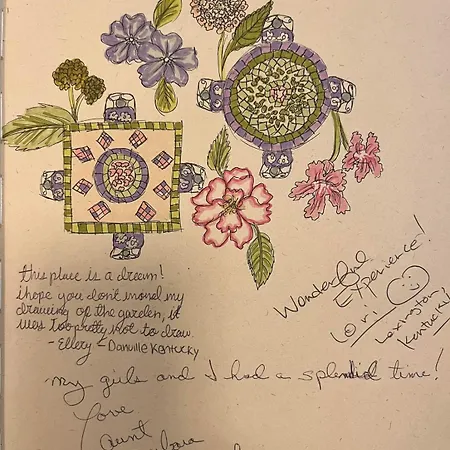 this place is a dream!
i hope you don't mond my
drawing of the garden, it
was too pretty not to draw.
- Ellery - Danville Kentucky
Wonderful
Experience!
Lori
Lexington
Kentucky
My girls and I had a splendid time!
Love
Aunt